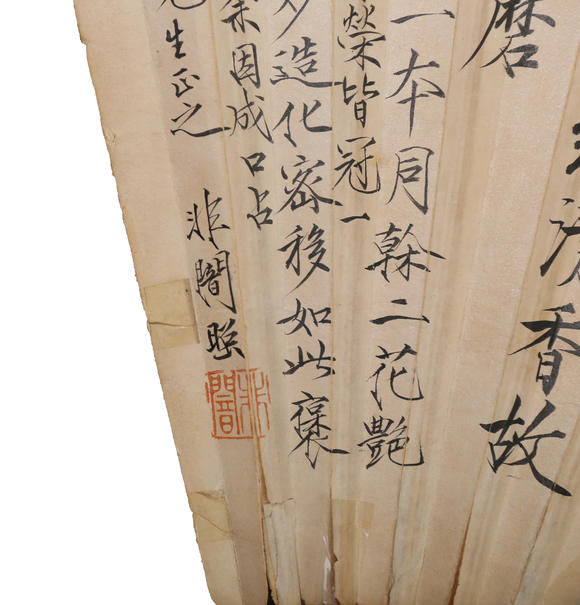 磨
香故
一本同幹二花艷
榮皆冠一
造化密移如此褒
因成口占
生正之
非闇
非闇